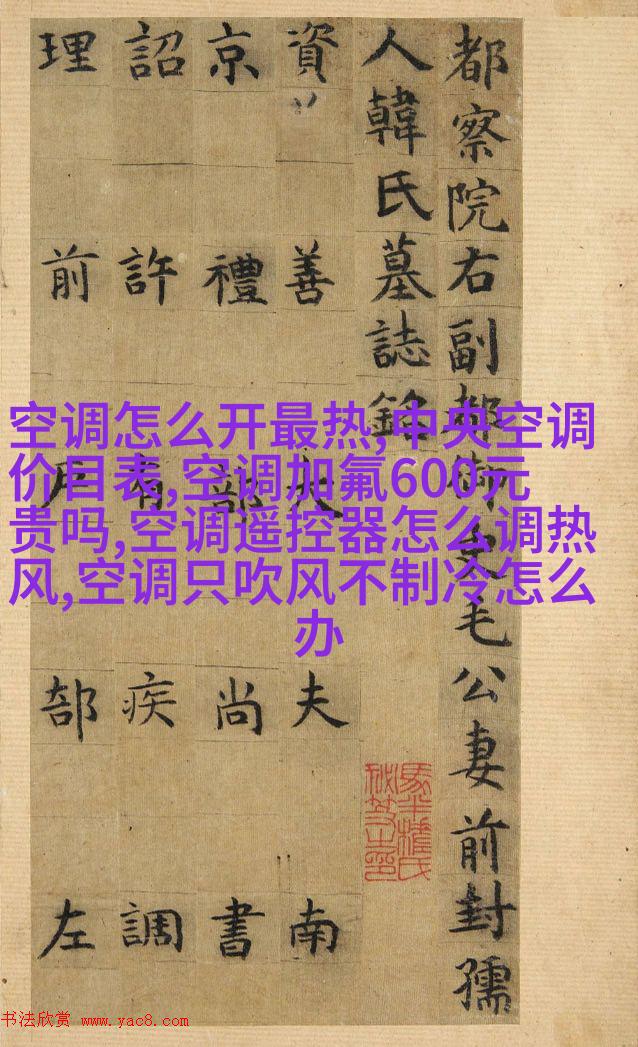 都察院右副都御史毛公妻前封孺
人韓氏墓誌銘
資善大夫南
京禮部尚書
詔許有疾調
理前戶部左
空调怎么开最热,中央空调
价目表,空调加氟600元
贵吗,空调遥控器怎么调热
风,空调只吹风不制冷怎么
办
书法欣赏 www.yac8.com